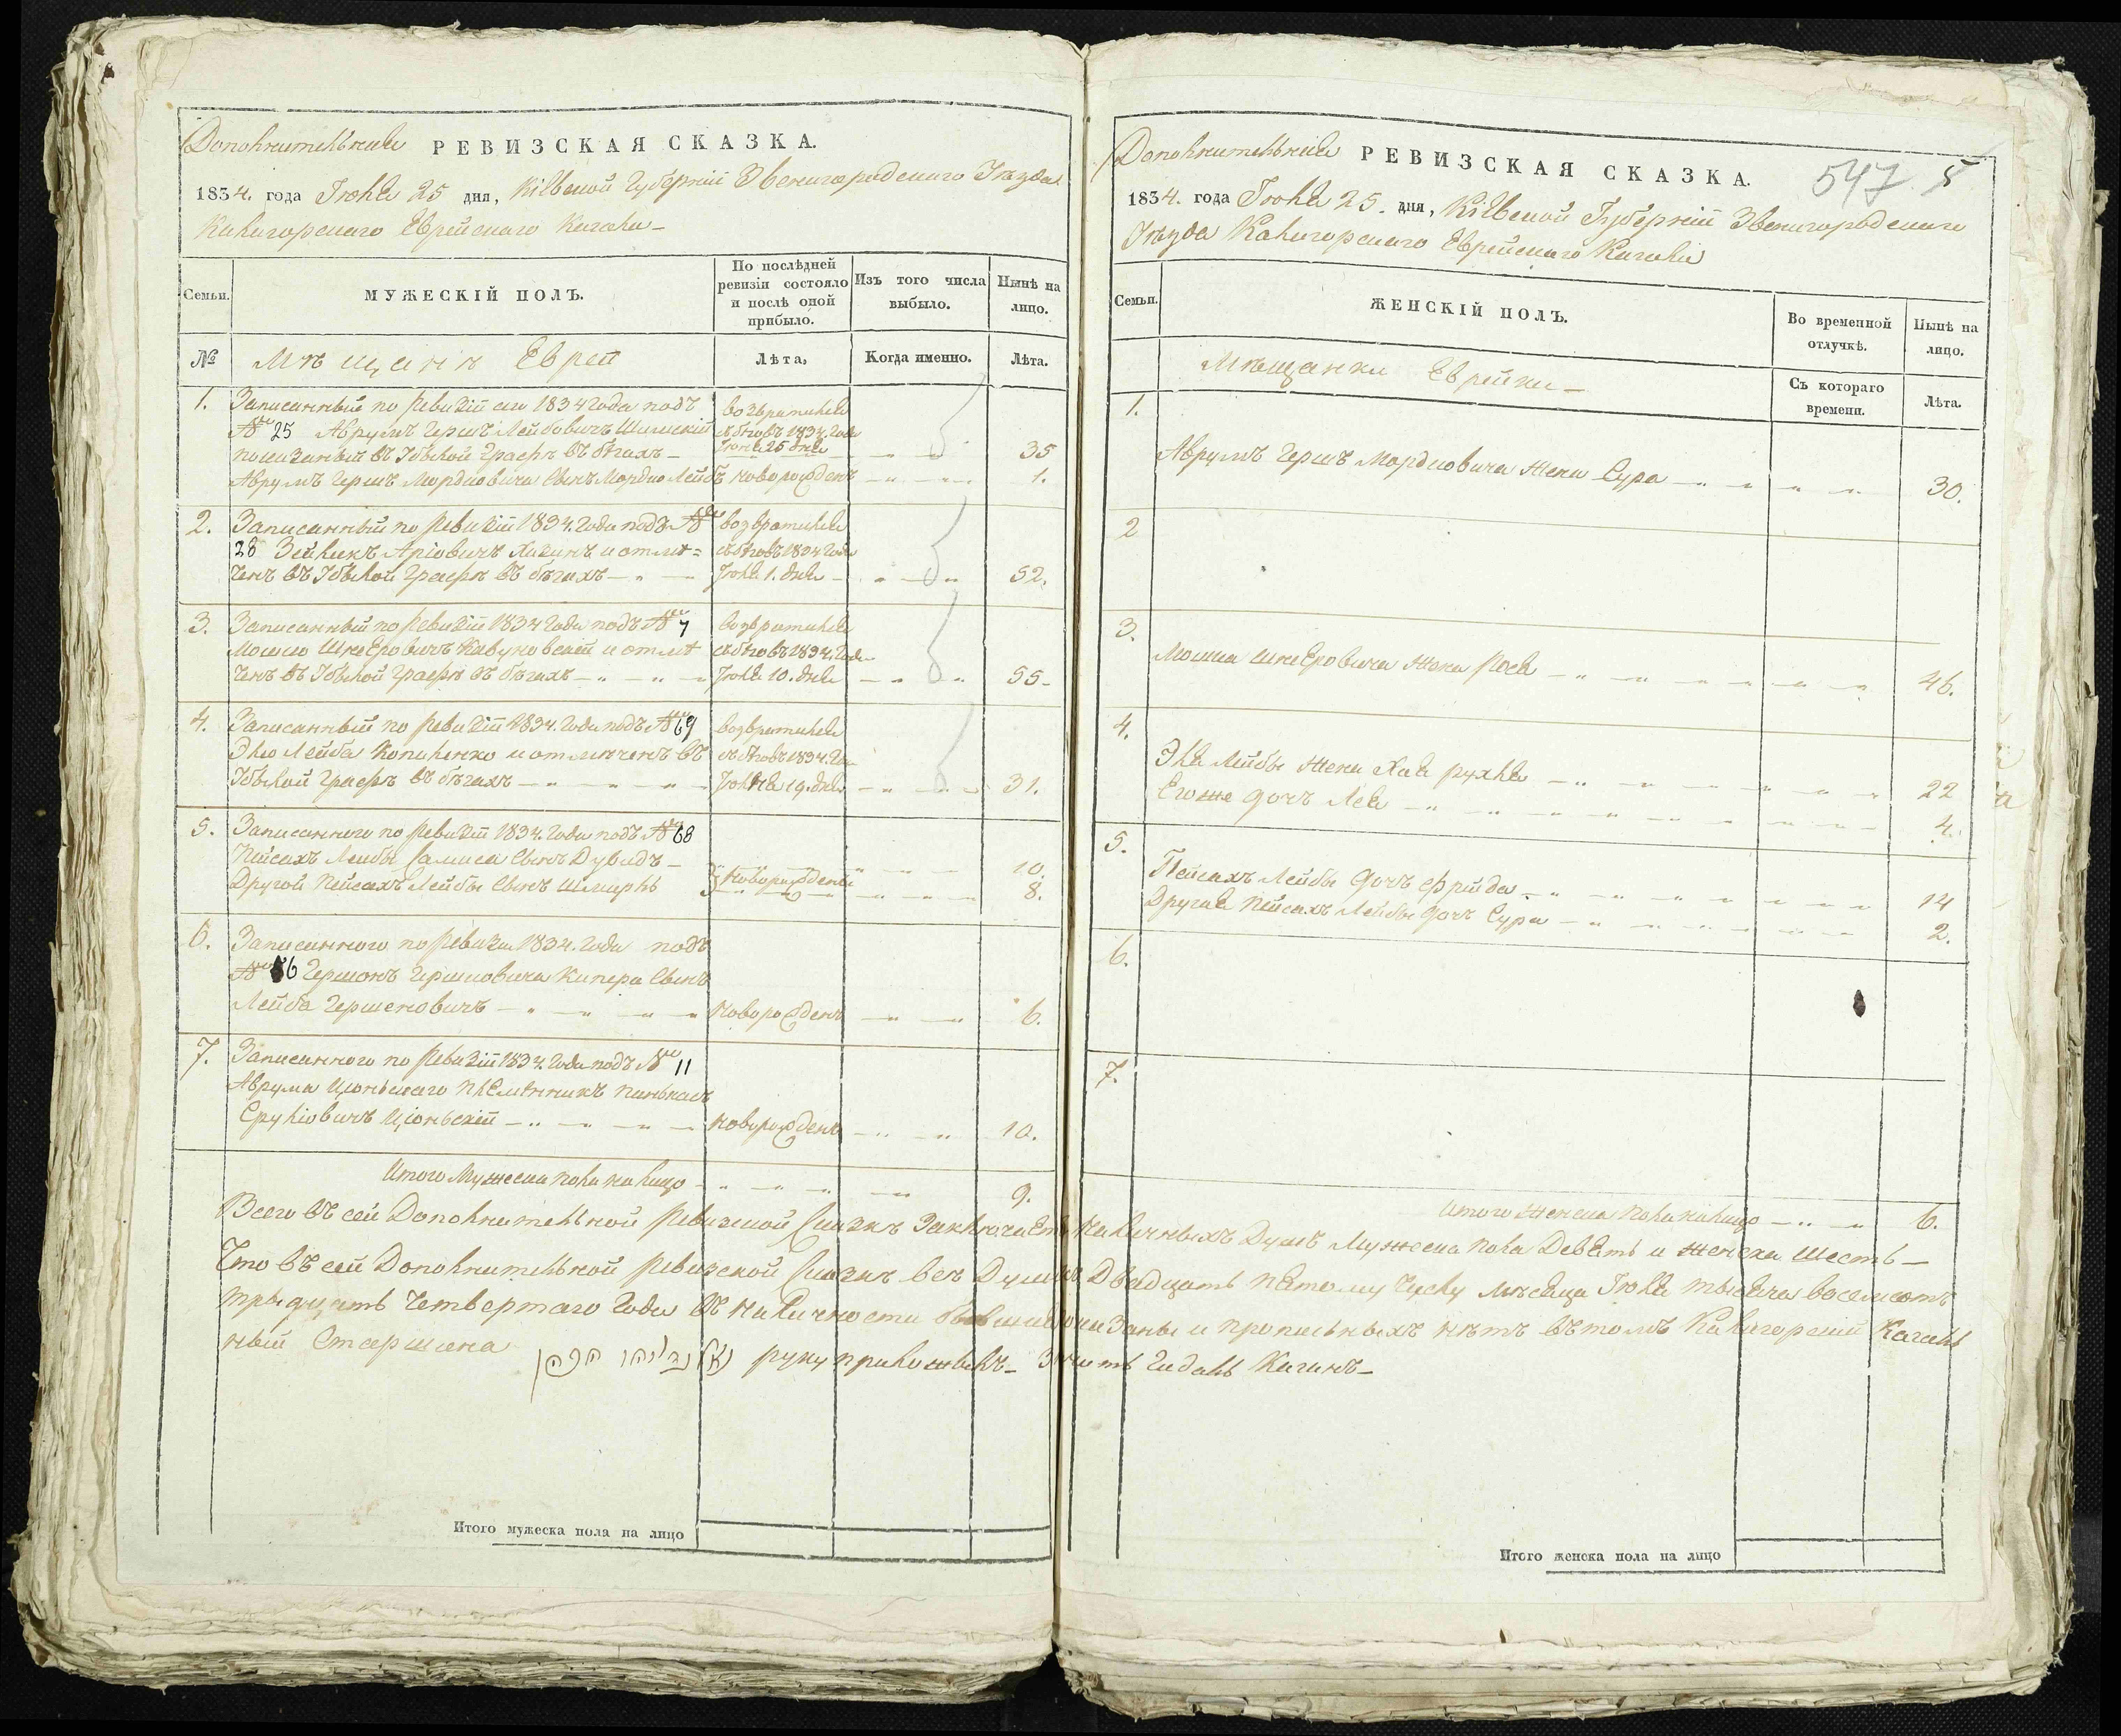 Дополнительная РЕВИЗСКАЯ СКАЗКА.
1834. года Іюля 25 дня, Кіевской Губерніи Звенигородскаго Уѣзда
Калигорскаго Еврейскаго Кагала
Семьи. МУЖЕСКІЙ ПОЛЪ. По послѣдней ревизіи состояло и послѣ оной прибыло. Изъ того числа выбыло. Нынѣ на лицо.
№ Мѣщанъ Еврей Лѣта, Когда именно. Лѣта.
1. Записанный по ревизіи сего 1834 года подъ возвратился
№ 25 Аврумъ Гершъ Лейбовичъ съ бѣговъ 1834 года
показанный въ убылой графѣ въ бѣгахъ Іюля 25 дня 35
Аврумъ Гершъ Мордковича сынъ Мордко Лейбъ новорожденъ 1.
2. Записанный по ревизіи 1834. года подъ № возвратился
28 Зейликъ Аріовичъ и отмѣ= съ бѣговъ 1834 года
ченъ въ убылой графѣ въ бѣгахъ Іюля 1. дня 52.
3. Записанный по ревизіи 1834 года подъ № 7 возвратился
Мошко Шнееровичъ Кавуновскій и отмѣ съ бѣговъ 1834. года
ченъ въ убылой графѣ въ бѣгахъ Іюля 10. дня 55
4. Записанный по ревизіи 1834. года подъ № 69 возвратился
Элю Лейба Копиленко и отмѣченъ въ съ бѣговъ 1834. года
убылой графѣ въ бѣгахъ Іюля 19. дня 31.
5. Записаннаго по ревизіи 1834. года подъ № 68
Пейсахъ Лейбы сынъ Дувидъ новорожденъ 10.
Другой Пейсахъ Лейбы сынъ Шмиръ 8.
6. Записаннаго по ревизіи 1834. года подъ
№ 56 Гершонъ Гершковича Кипера сынъ
Лейба Гершоновичъ новорожденъ 6.
7. Записаннаго по ревизіи 1834. года подъ № 11
Аврума Ціоньскаго племѣнникъ Пинькасъ
Сруліовичъ Ціоньскій новорожденъ 10.
Итого Мужеска пола на лицо 9.
Дополнительная РЕВИЗСКАЯ СКАЗКА. 547 8
1834. года Іюля 25. дня, Кіевской Губерніи Звенигородскаго
Уѣзда Калигорскаго Еврейскаго Кагала
Семьи. ЖЕНСКІЙ ПОЛЪ. Во временной отлучкѣ. Нынѣ на лицо.
Мѣщанки Еврейки Съ котораго времени. Лѣта.
1.
Аврумъ Гершъ Мордковича жена Сура 30.
2
3.
Мошка Шнееровича жена Рося 46.
4.
Эля Лейбы жена Хая Рухля 22
Его же дочъ Лея 4.
5.
Пейсахъ Лейбы дочъ Фрейда 14
Другая Пейсахъ Лейбы дочъ Сура 2.
6.
7.
Итого Женска пола на лицо 6.
Всего въ сей Дополнительной Ревизской Сказкѣ заключаетъ наличныхъ Душъ Мужеска пола Девять и Женска Шесть
Что въ сей Дополнительной Ревизской Сказкѣ всѣ Души къ Двадцать пятому числу мѣсяца Іюля тысяча восемсотъ
тридцать четвертаго года въ наличности бывшие показаны и прописныхъ нѣтъ въ томъ Калигорскій Кагаль
ный Старшина руку приложилъ Гидаль Каганъ
Итого мужеска пола на лицо
Итого женска пола на лицо